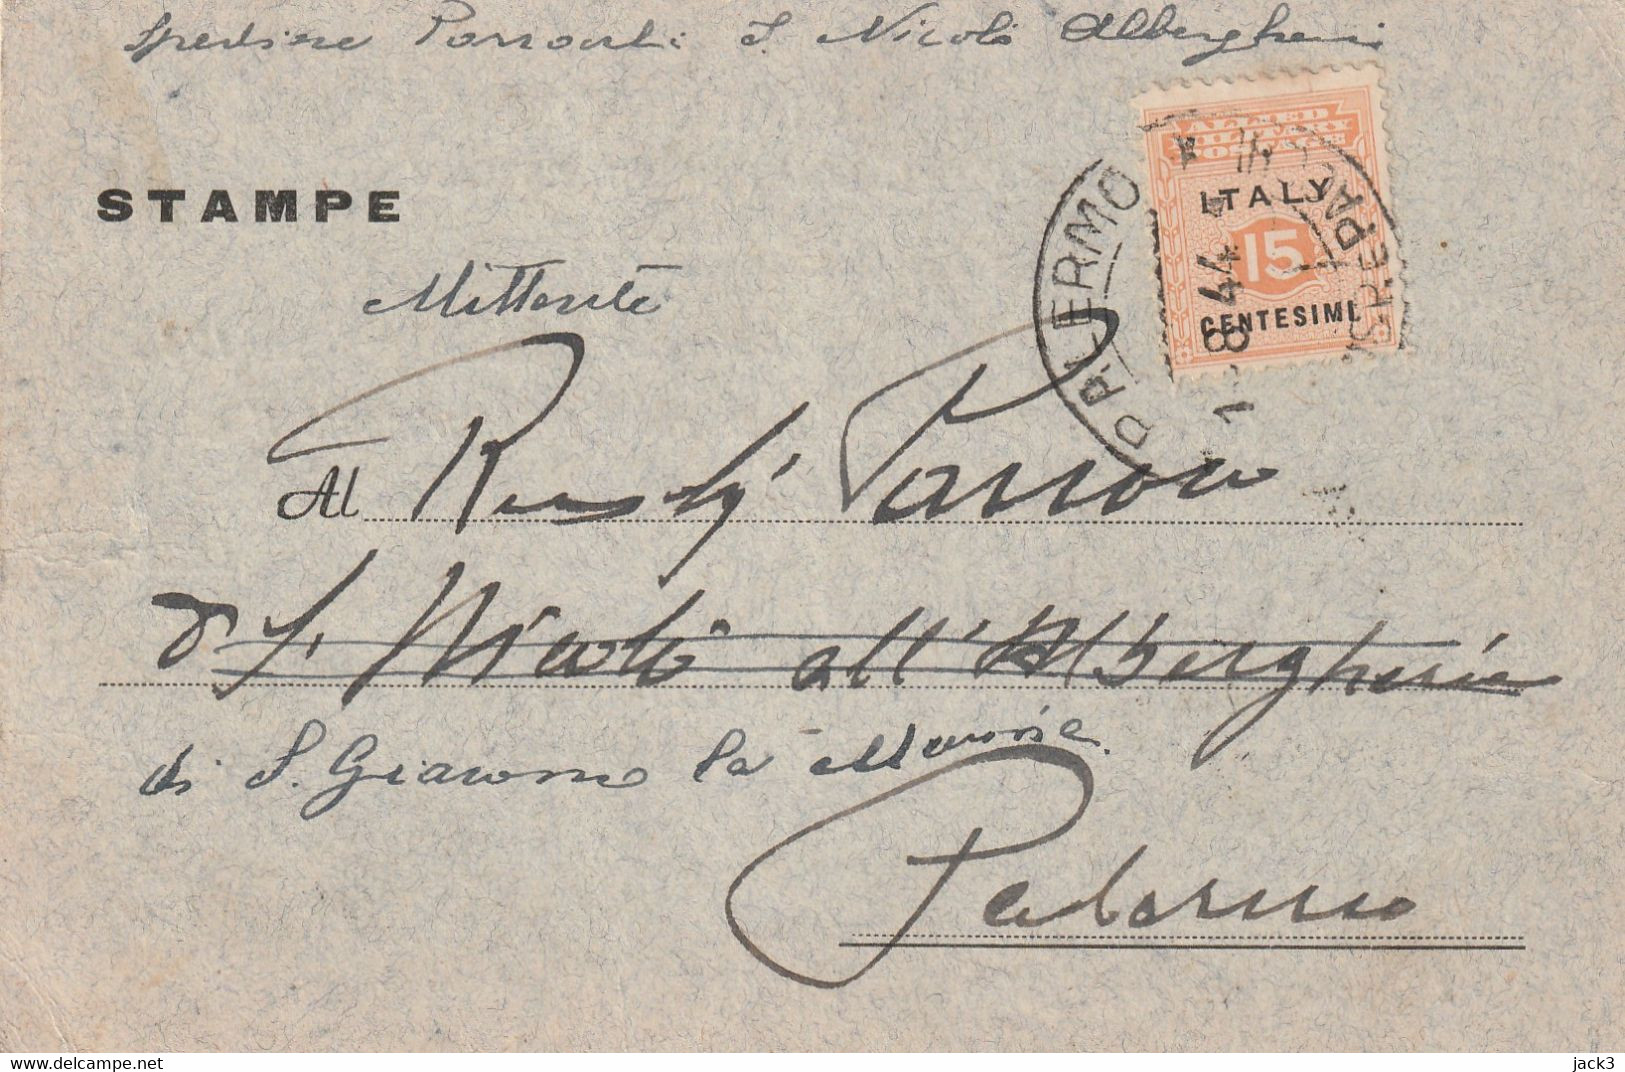 Spedisce Parrocchi S. Nicolò Albergheria
STAMPE
ALLIED
MILITARY
POSTAGE
ITALY
15
CENTESIMI
PALERMO
8 44
Mittente
Al Parroco
di S. Nicolò all'Albergheria
di S. Giacomo la Marina
Palermo
jack3